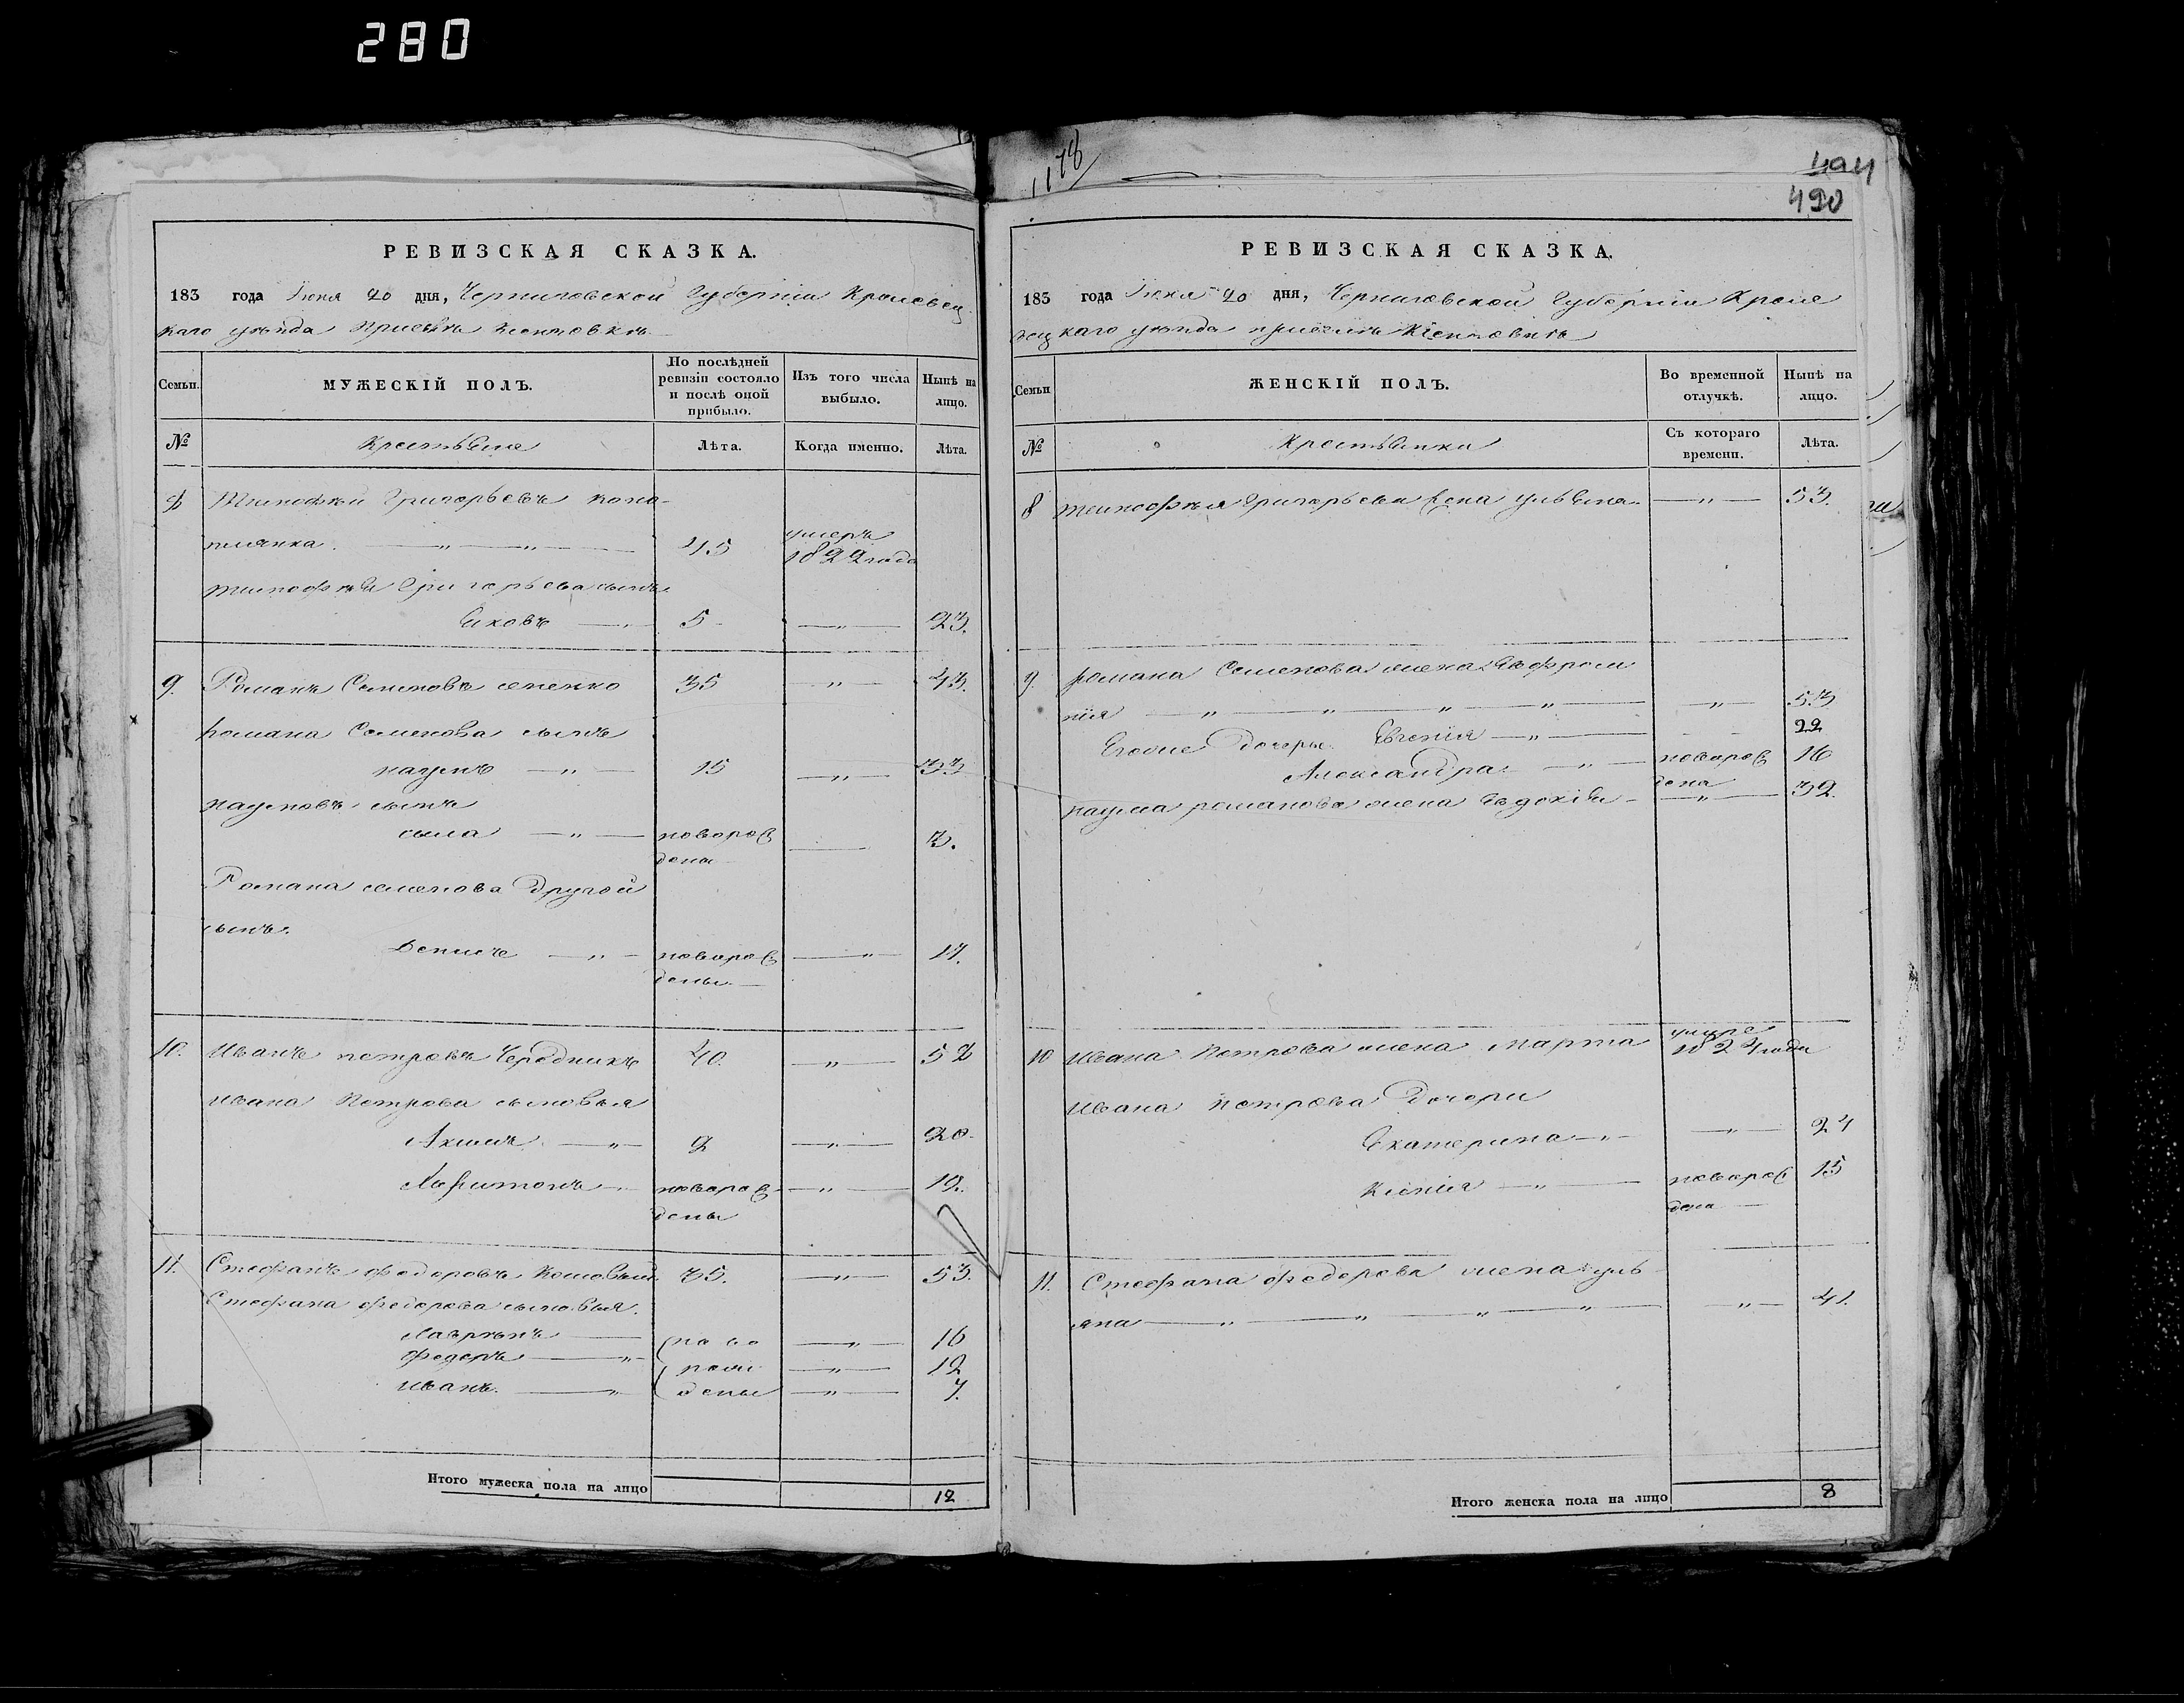 280
1178
494
490
РЕВИЗСКАЯ СКАЗКА.
183 года Июня 20 дня, Черниговской Губерніи Кролевец
каго уѣзда
№ Семьи.
МУЖЕСКІЙ ПОЛЪ.
По послѣдней ревизіи состояло и послѣ оной прибыло.
Изъ того числа выбыло.
Нынѣ на лицо.
№
Крестьяне
Лѣта.
Когда именно.
Лѣта.
Тимофѣй Григорьевъ
45 умеръ 1822 года
Тимофѣя Григорьева сынъ
Яковъ 5 23.
9. Романъ Семеновъ 35 43.
Романа Семенова сынъ
Наумъ 15 33
Наумовъ сынъ
сила новорож дены 3.
Романа семенова другой
сынъ.
Денисъ новорож дены 17.
10. Иванъ петровъ Чередникъ 40. 52
Ивана Петрова сыновья
Акимъ 2 20.
Харитонъ новорож дены 12.
11. Стефанъ федоровъ 35. 53.
Стефана федорова сыновья.
16
федоръ 12
Иванъ. дены 7.
Итого мужеска пола на лицо 12
РЕВИЗСКАЯ СКАЗКА.
183 года Июня 20 дня, Черниговской Губерніи Кроле
вецкаго уѣзда
Семьи
ЖЕНСКІЙ ПОЛЪ.
Во временной отлучкѣ.
Нынѣ на лицо.
№
Крестьянки
Съ котораго времени.
Лѣта.
8 Тимофѣя Григорьева жена ульяна 53.
9. Романа Семенова жена Евфроси
нія 53
Егоже дочеры Евгенія 22
Александра новорож дена 16
Наума романова жена Евдокія 32.
10 Ивана Петрова жена Марта умре 1824 года
Ивана петрова дочери
Екатерина 24
Ксенія новорож дена 15
11. Стефана федорова жена уль
яна 41.
Итого женска пола на лицо 8